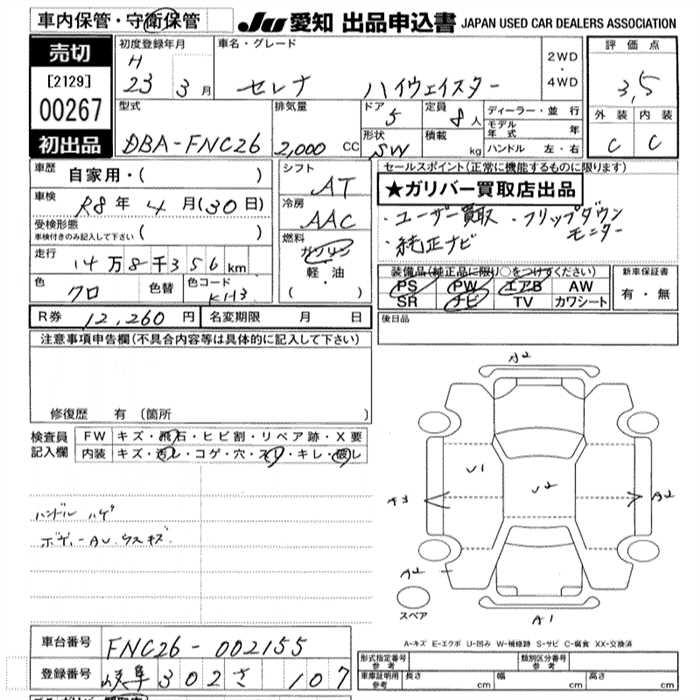 車内保管・守衛保管
JU 愛知 出品申込書 JAPAN USED CAR DEALERS ASSOCIATION
売切
[2129]
00267
初出品
初度登録年月
H 23年 3月
車名・グレード
セレナ ハイウェイスター
2WD
・
4WD
評価点
3.5
外装 内装
C C
型式
DBA-FNC26
排気量
2,000 CC
ドア
5
形状
SW
定員
8人
積載
kg
ディーラー・並行
モデル年式 年
ハンドル 左・右
車歴
自家用・( )
車検
R8年 4月(30日)
受検形態
車検付きのみ記入して下さい ( )
走行
14万8千356km
色
クロ
色替
色コード
KH3
シフト
AT
冷房
AAC
燃料
ガソリン
軽・油
( ・ )
セールスポイント(正常に機能するものに限ります)
★ガリバー買取店出品
・ユーザー買取 ・フリップダウンモニター
・純正ナビ
装備品(純正品に限り○をつけてください)
PS PW エアB AW
SR ナビ TV カワシート
新車保証書
有・無
R券 12,260円 名変期限 月 日
後日品
注意事項申告欄(不具合内容等は具体的に記入して下さい)
修復歴 有 (箇所
検査員記入欄
FW キズ・飛石・ヒビ割・リペア跡・X要
内装 キズ・汚レ・コゲ・穴・スレ・キレ・破レ
ハンドル ハゲ
ボディーAU.ウスキズ
A2
U1
U2
A3
A2
A2
A1
スペア
A-キズ E-エクボ U-凹み W-補修跡 S-サビ C-腐食 XX-交換済
車台番号 FNC26-002155
登録番号 岐阜 302 さ 107
形式指定番号 参考
類別区分番号 参考
車庫証明用 参考 長さ cm 幅 cm 高さ cm